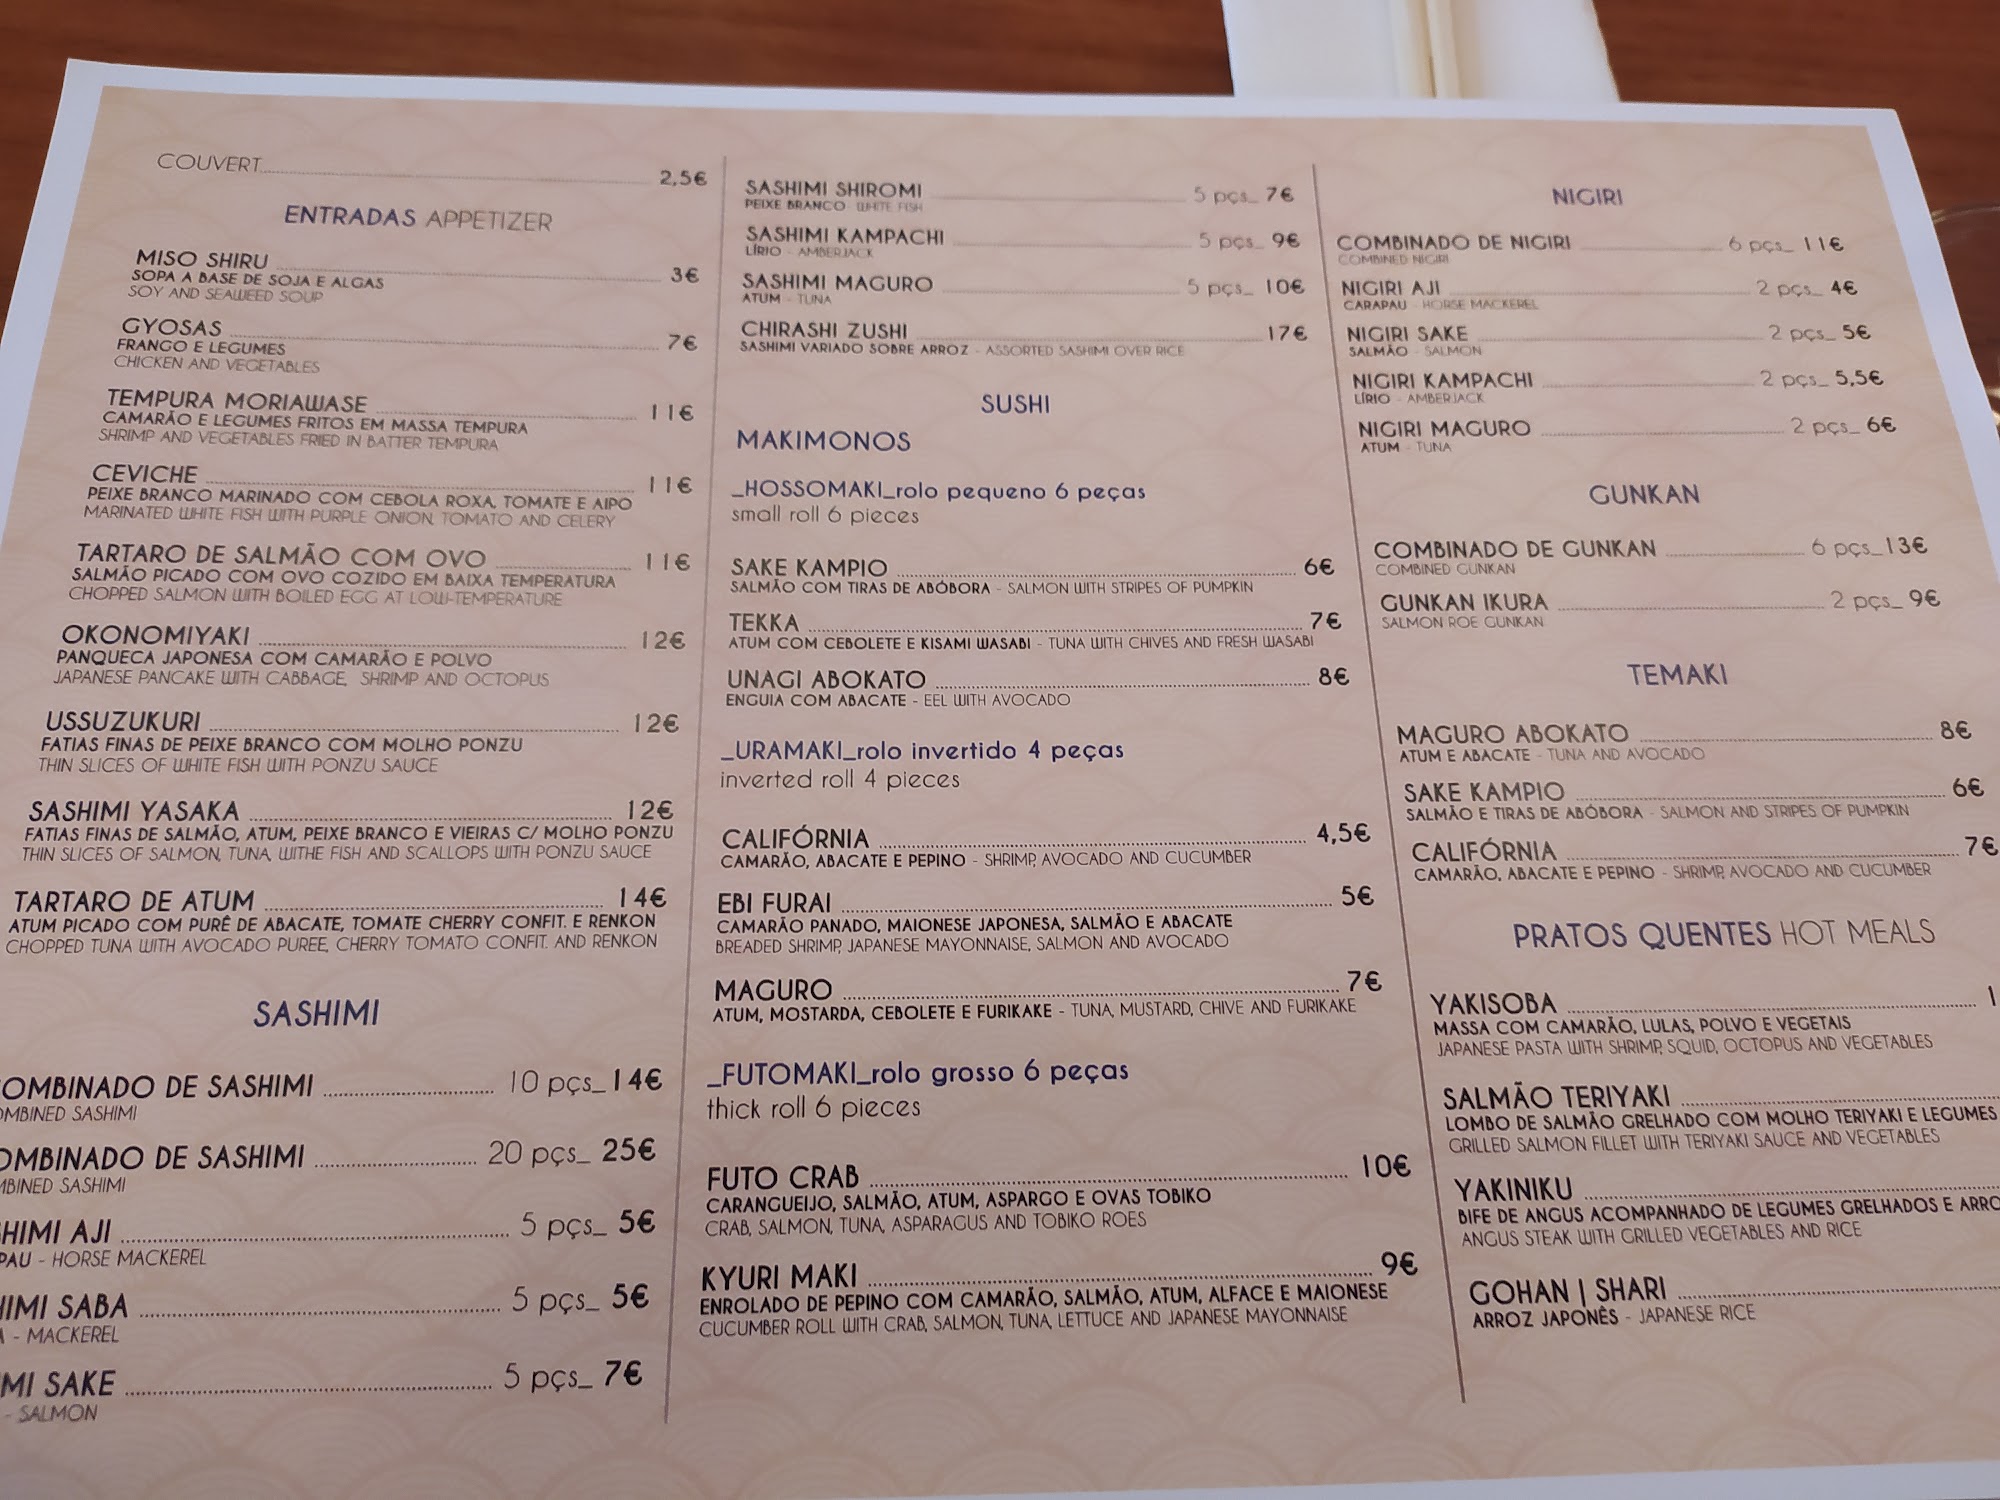 COUVERT 2,5€
ENTRADAS APPETIZER
MISO SHIRU 3€
SOPA A BASE DE SOJA E ALGAS
SOY AND SEAWEED SOUP
GYOSAS 7€
FRANGO E LEGUMES
CHICKEN AND VEGETABLES
TEMPURA MORIAWASE 11€
CAMARÃO E LEGUMES FRITOS EM MASSA TEMPURA
SHRIMP AND VEGETABLES FRIED IN BATTER TEMPURA
CEVICHE 11€
PEIXE BRANCO MARINADO COM CEBOLA ROXA, TOMATE E AIPO
MARINATED WHITE FISH WITH PURPLE ONION, TOMATO AND CELERY
TARTARO DE SALMÃO COM OVO 11€
SALMÃO PICADO COM OVO COZIDO EM BAIXA TEMPERATURA
CHOPPED SALMON WITH BOILED EGG AT LOW-TEMPERATURE
OKONOMIYAKI 12€
PANQUECA JAPONESA COM CAMARÃO E POLVO
JAPANESE PANCAKE WITH CABBAGE, SHRIMP AND OCTOPUS
USSUZUKURI 12€
FATIAS FINAS DE PEIXE BRANCO COM MOLHO PONZU
THIN SLICES OF WHITE FISH WITH PONZU SAUCE
SASHIMI YASAKA 12€
FATIAS FINAS DE SALMÃO, ATUM, PEIXE BRANCO E VIEIRAS C/ MOLHO PONZU
THIN SLICES OF SALMON, TUNA, WITHE FISH AND SCALLOPS WITH PONZU SAUCE
TARTARO DE ATUM 14€
ATUM PICADO COM PURÊ DE ABACATE, TOMATE CHERRY CONFIT. E RENKON
CHOPPED TUNA WITH AVOCADO PUREE, CHERRY TOMATO CONFIT. AND RENKON
SASHIMI
OMBINADO DE SASHIMI 10 pçs_14€
OMBINED SASHIMI
OMBINADO DE SASHIMI 20 pçs_ 25€
MBINED SASHIMI
HIMI AJI 5 pçs_ 5€
PAU - HORSE MACKEREL
HIMI SABA 5 pçs_ 5€
A - MACKEREL
MI SAKE 5 pçs_ 7€
- SALMON
SASHIMI SHIROMI 5 pçs_ 7€
PEIXE BRANCO - WHITE FISH
SASHIMI KAMPACHI 5 pçs_ 9€
LÍRIO - AMBERJACK
SASHIMI MAGURO 5 pçs_ 10€
ATUM - TUNA
CHIRASHI ZUSHI 17€
SASHIMI VARIADO SOBRE ARROZ - ASSORTED SASHIMI OVER RICE
SUSHI
MAKIMONOS
_HOSSOMAKI_rolo pequeno 6 peças
small roll 6 pieces
SAKE KAMPIO 6€
SALMÃO COM TIRAS DE ABÓBORA - SALMON WITH STRIPES OF PUMPKIN
TEKKA 7€
ATUM COM CEBOLETE E KISAMI WASABI - TUNA WITH CHIVES AND FRESH WASABI
UNAGI ABOKATO 8€
ENGUIA COM ABACATE - EEL WITH AVOCADO
_URAMAKI_rolo invertido 4 peças
inverted roll 4 pieces
CALIFÓRNIA 4,5€
CAMARÃO, ABACATE E PEPINO - SHRIMP, AVOCADO AND CUCUMBER
EBI FURAI 5€
CAMARÃO PANADO, MAIONESE JAPONESA, SALMÃO E ABACATE
BREADED SHRIMP, JAPANESE MAYONNAISE, SALMON AND AVOCADO
MAGURO 7€
ATUM, MOSTARDA, CEBOLETE E FURIKAKE - TUNA, MUSTARD, CHIVE AND FURIKAKE
_FUTOMAKI_rolo grosso 6 peças
thick roll 6 pieces
FUTO CRAB 10€
CARANGUEIJO, SALMÃO, ATUM, ASPARGO E OVAS TOBIKO
CRAB, SALMON, TUNA, ASPARAGUS AND TOBIKO ROES
KYURI MAKI 9€
ENROLADO DE PEPINO COM CAMARÃO, SALMÃO, ATUM, ALFACE E MAIONESE
CUCUMBER ROLL WITH CRAB, SALMON, TUNA, LETTUCE AND JAPANESE MAYONNAISE
NIGIRI
COMBINADO DE NIGIRI 6 pçs_ 11€
COMBINED NIGIRI
NIGIRI AJI 2 pçs_ 4€
CARAPAU - HORSE MACKEREL
NIGIRI SAKE 2 pçs_ 5€
SALMÃO - SALMON
NIGIRI KAMPACHI 2 pçs_ 5,5€
LÍRIO - AMBERJACK
NIGIRI MAGURO 2 pçs_ 6€
ATUM - TUNA
GUNKAN
COMBINADO DE GUNKAN 6 pçs_13€
COMBINED GUNKAN
GUNKAN IKURA 2 pçs_ 9€
SALMON ROE GUNKAN
TEMAKI
MAGURO ABOKATO 8€
ATUM E ABACATE - TUNA AND AVOCADO
SAKE KAMPIO 6€
SALMÃO E TIRAS DE ABÓBORA - SALMON AND STRIPES OF PUMPKIN
CALIFÓRNIA 7€
CAMARÃO, ABACATE E PEPINO - SHRIMP, AVOCADO AND CUCUMBER
PRATOS QUENTES HOT MEALS
YAKISOBA 1
MASSA COM CAMARÃO, LULAS, POLVO E VEGETAIS
JAPANESE PASTA WITH SHRIMP, SQUID, OCTOPUS AND VEGETABLES
SALMÃO TERIYAKI
LOMBO DE SALMÃO GRELHADO COM MOLHO TERIYAKI E LEGUMES
GRILLED SALMON FILLET WITH TERIYAKI SAUCE AND VEGETABLES
YAKINIKU
BIFE DE ANGUS ACOMPANHADO DE LEGUMES GRELHADOS E ARRO
ANGUS STEAK WITH GRILLED VEGETABLES AND RICE
GOHAN | SHARI
ARROZ JAPONÊS - JAPANESE RICE